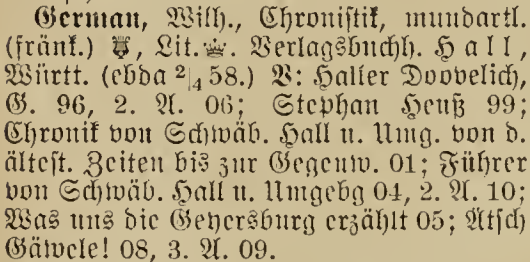 German, Wilh., Chronistik, mundartl.
(fränk.) Lit. Verlagsbuchh. Hall,
Württ. (ebda 2|4 58.) V: Haller Doovelich,
G. 96, 2. A. 06; Stephan Heuß 99;
Chronik von Schwäb. Hall u. Umg. von d.
ältest. Zeiten bis zur Gegenw. 01; Führer
von Schwäb. Hall u. Umgebg 04, 2. A. 10;
Was uns die Geyersburg erzählt 05; Ätsch
Gäwele! 08, 3. A. 09.